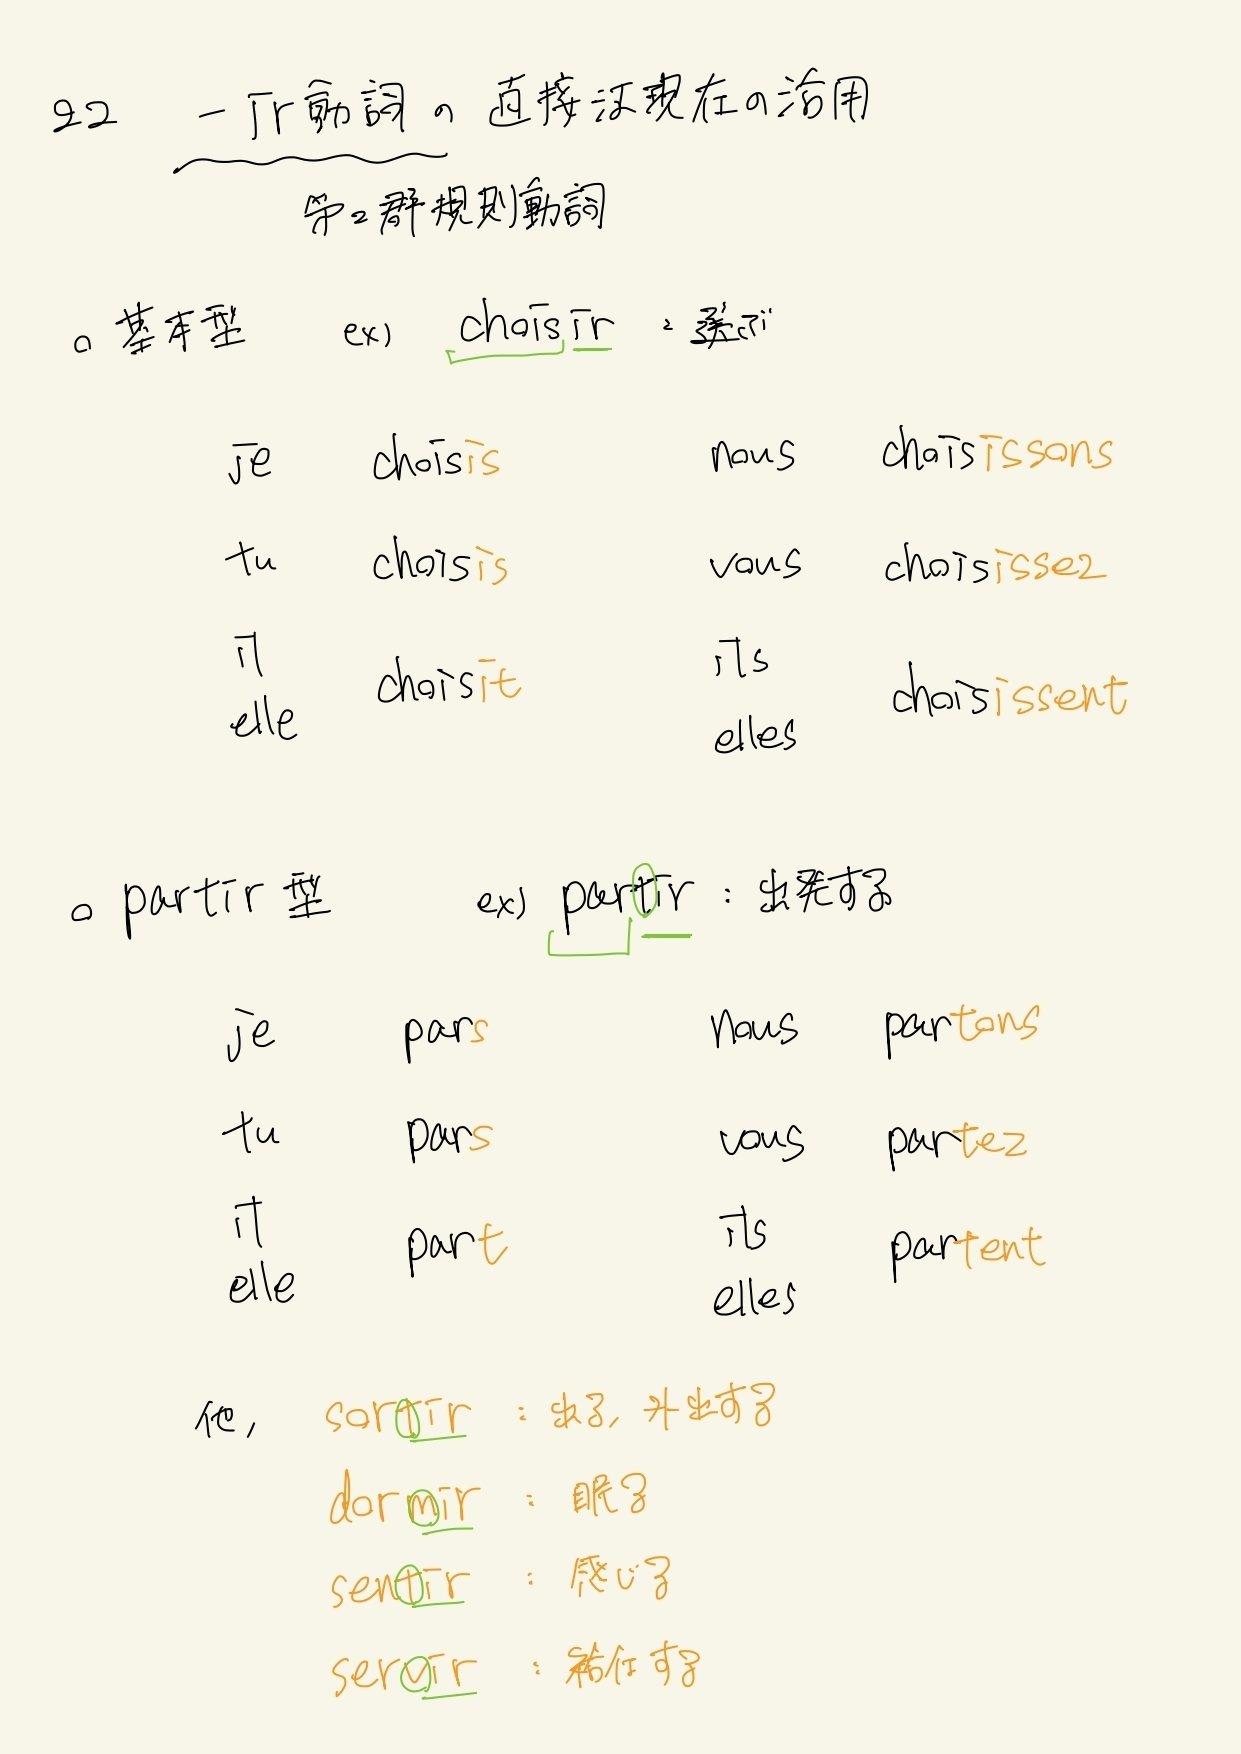 22 -ir動詞の直接法現在の活用
第2群規則動詞
○ 基本型 ex) choisir : 選ぶ
je choisis nous choisissons
tu choisis vous choisissez
il elle choisit ils elles choisissent
○ partir 型 ex) partir : 出発する
je pars nous partons
tu pars vous partez
il elle part ils elles partent
他, sortir : 出る, 外出する
dormir : 眠る
sentir : 感じる
servir : 給仕する